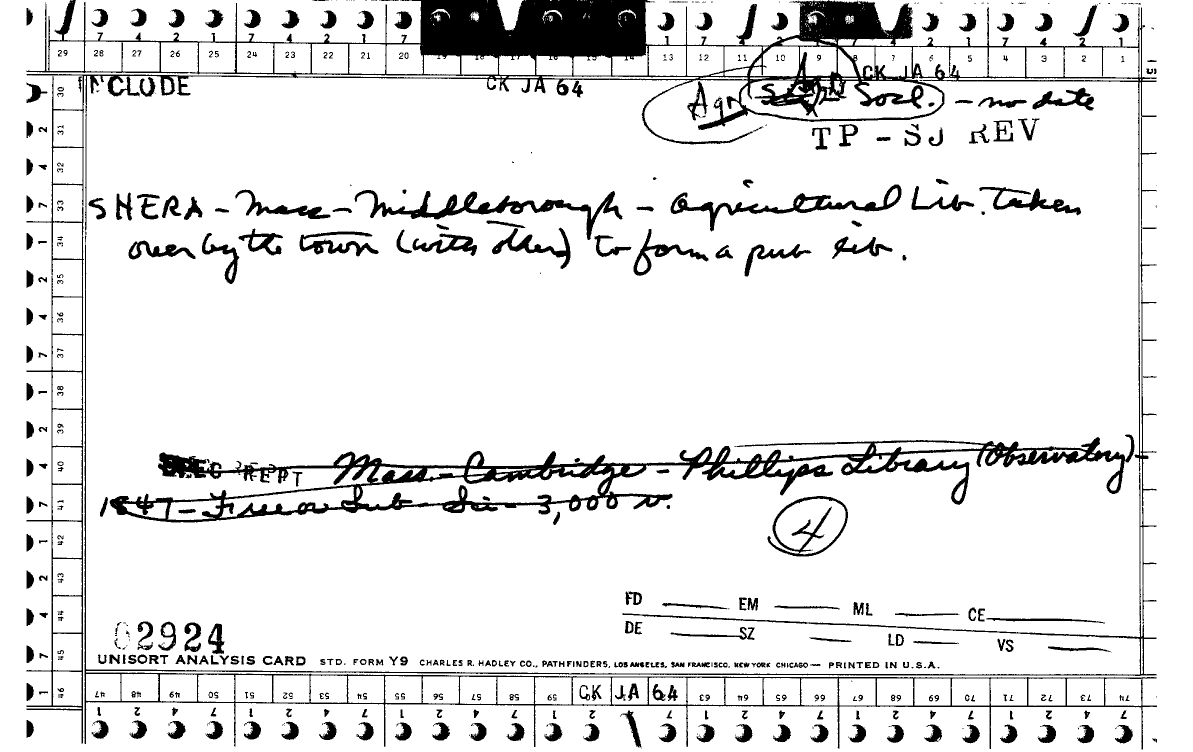 7 4 2 1 7 4 2 1 7 1 7 4 2 1 7 4 2 1
29 28 27 26 25 24 23 22 21 20 13 12 11 10 9 8 7 6 5 4 3 2 1
NCLUDE CK JA 64 CK JA 64
Agr Socl. - no date
TP - SJ REV
SHERA - Mass - Middleborough - Agricultural Lib. Taken
over by the town (with others) to form a pub lib.
ELEC REPT Mass. - Cambridge - Phillips Library (Observatory) -
1847 - Free or Sub - Sci - 3,000 v.
4
FD EM ML CE
DE SZ LD VS
02924
UNISORT ANALYSIS CARD STD. FORM Y9 CHARLES R. HADLEY CO., PATHFINDERS, LOS ANGELES, SAN FRANCISCO, NEW YORK CHICAGO — PRINTED IN U.S.A.
30 31 32 33 34 35 36 37 38 39 40 41 42 43 44 45 46
47 48 49 50 51 52 53 54 55 56 57 58 59 CK JA 64 63 64 65 66 67 68 69 70 71 72 73 74
1 2 4 7 1 2 4 7 1 2 4 7 1 2 4 7 1 2 4 7 1 2 4 7